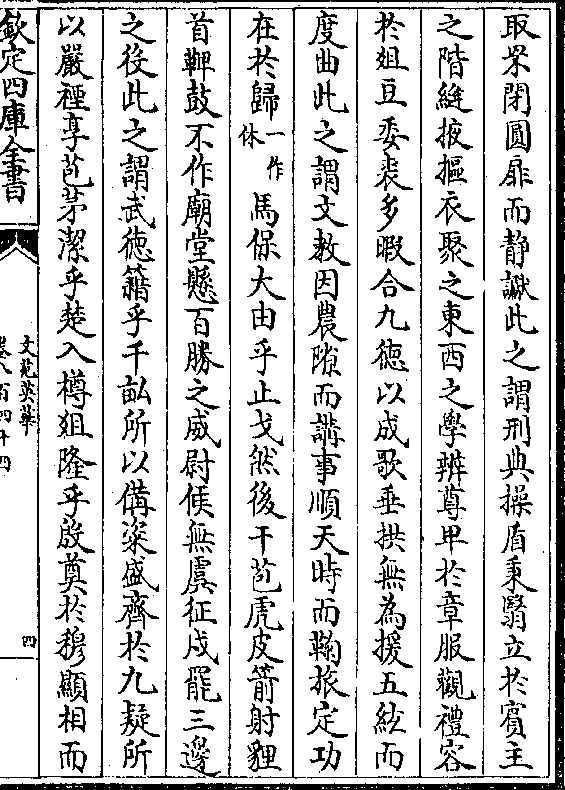 取䍐閉圓扉而静讞此之謂刑典操盾秉翳立於賓主
之階縫掖摳衣聚之東西之學辨尊卑於章服觀禮容
於俎豆委裘多暇合九徳以成歌垂拱無為援五絃而
度曲此之謂文教因農隙而講事順天時而鞠旅定功
在於歸一作休馬保大由乎止戈然後干苞虎皮箭射貍
首鞞鼓不作廟堂懸百勝之威尉候無虞征戍罷三邊
之役此之謂武徳籍乎千畝所以備粢盛齊於九嶷所
以嚴禋享苞茅潔乎楚入樽俎隆乎殷奠於穆顯相而
欽定四庫全書
文苑英華
卷八百四十四
四